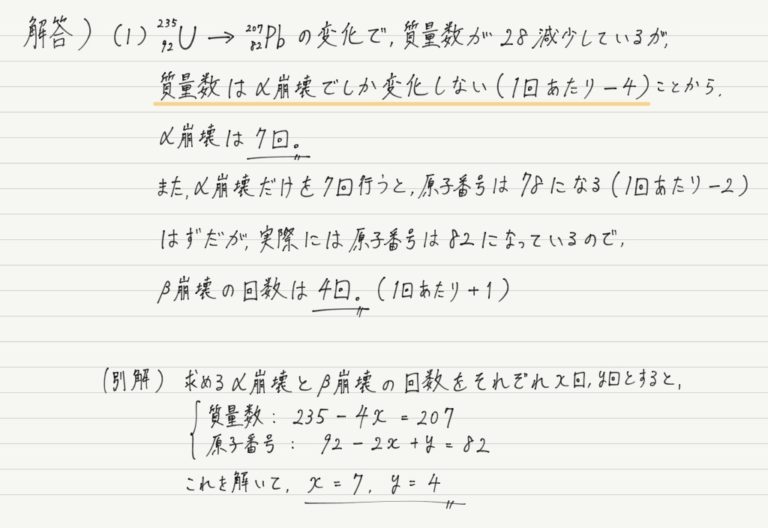 解答) (1) ²³⁵₉₂U → ²⁰⁷₈₂Pb の変化で, 質量数が 28 減少しているが,
質量数は α崩壊でしか変化しない (1回あたり −4) ことから,
α崩壊は 7回。
また, α崩壊だけを 7回行うと, 原子番号は 78 になる (1回あたり −2)
はずだが, 実際には原子番号は 82 になっているので,
β崩壊の回数は 4回。 (1回あたり +1)
(別解) 求める α崩壊と β崩壊の回数をそれぞれ x回, y回とすると,
質量数 : 235 − 4x = 207
原子番号 : 92 − 2x + y = 82
これを解いて, x = 7, y = 4